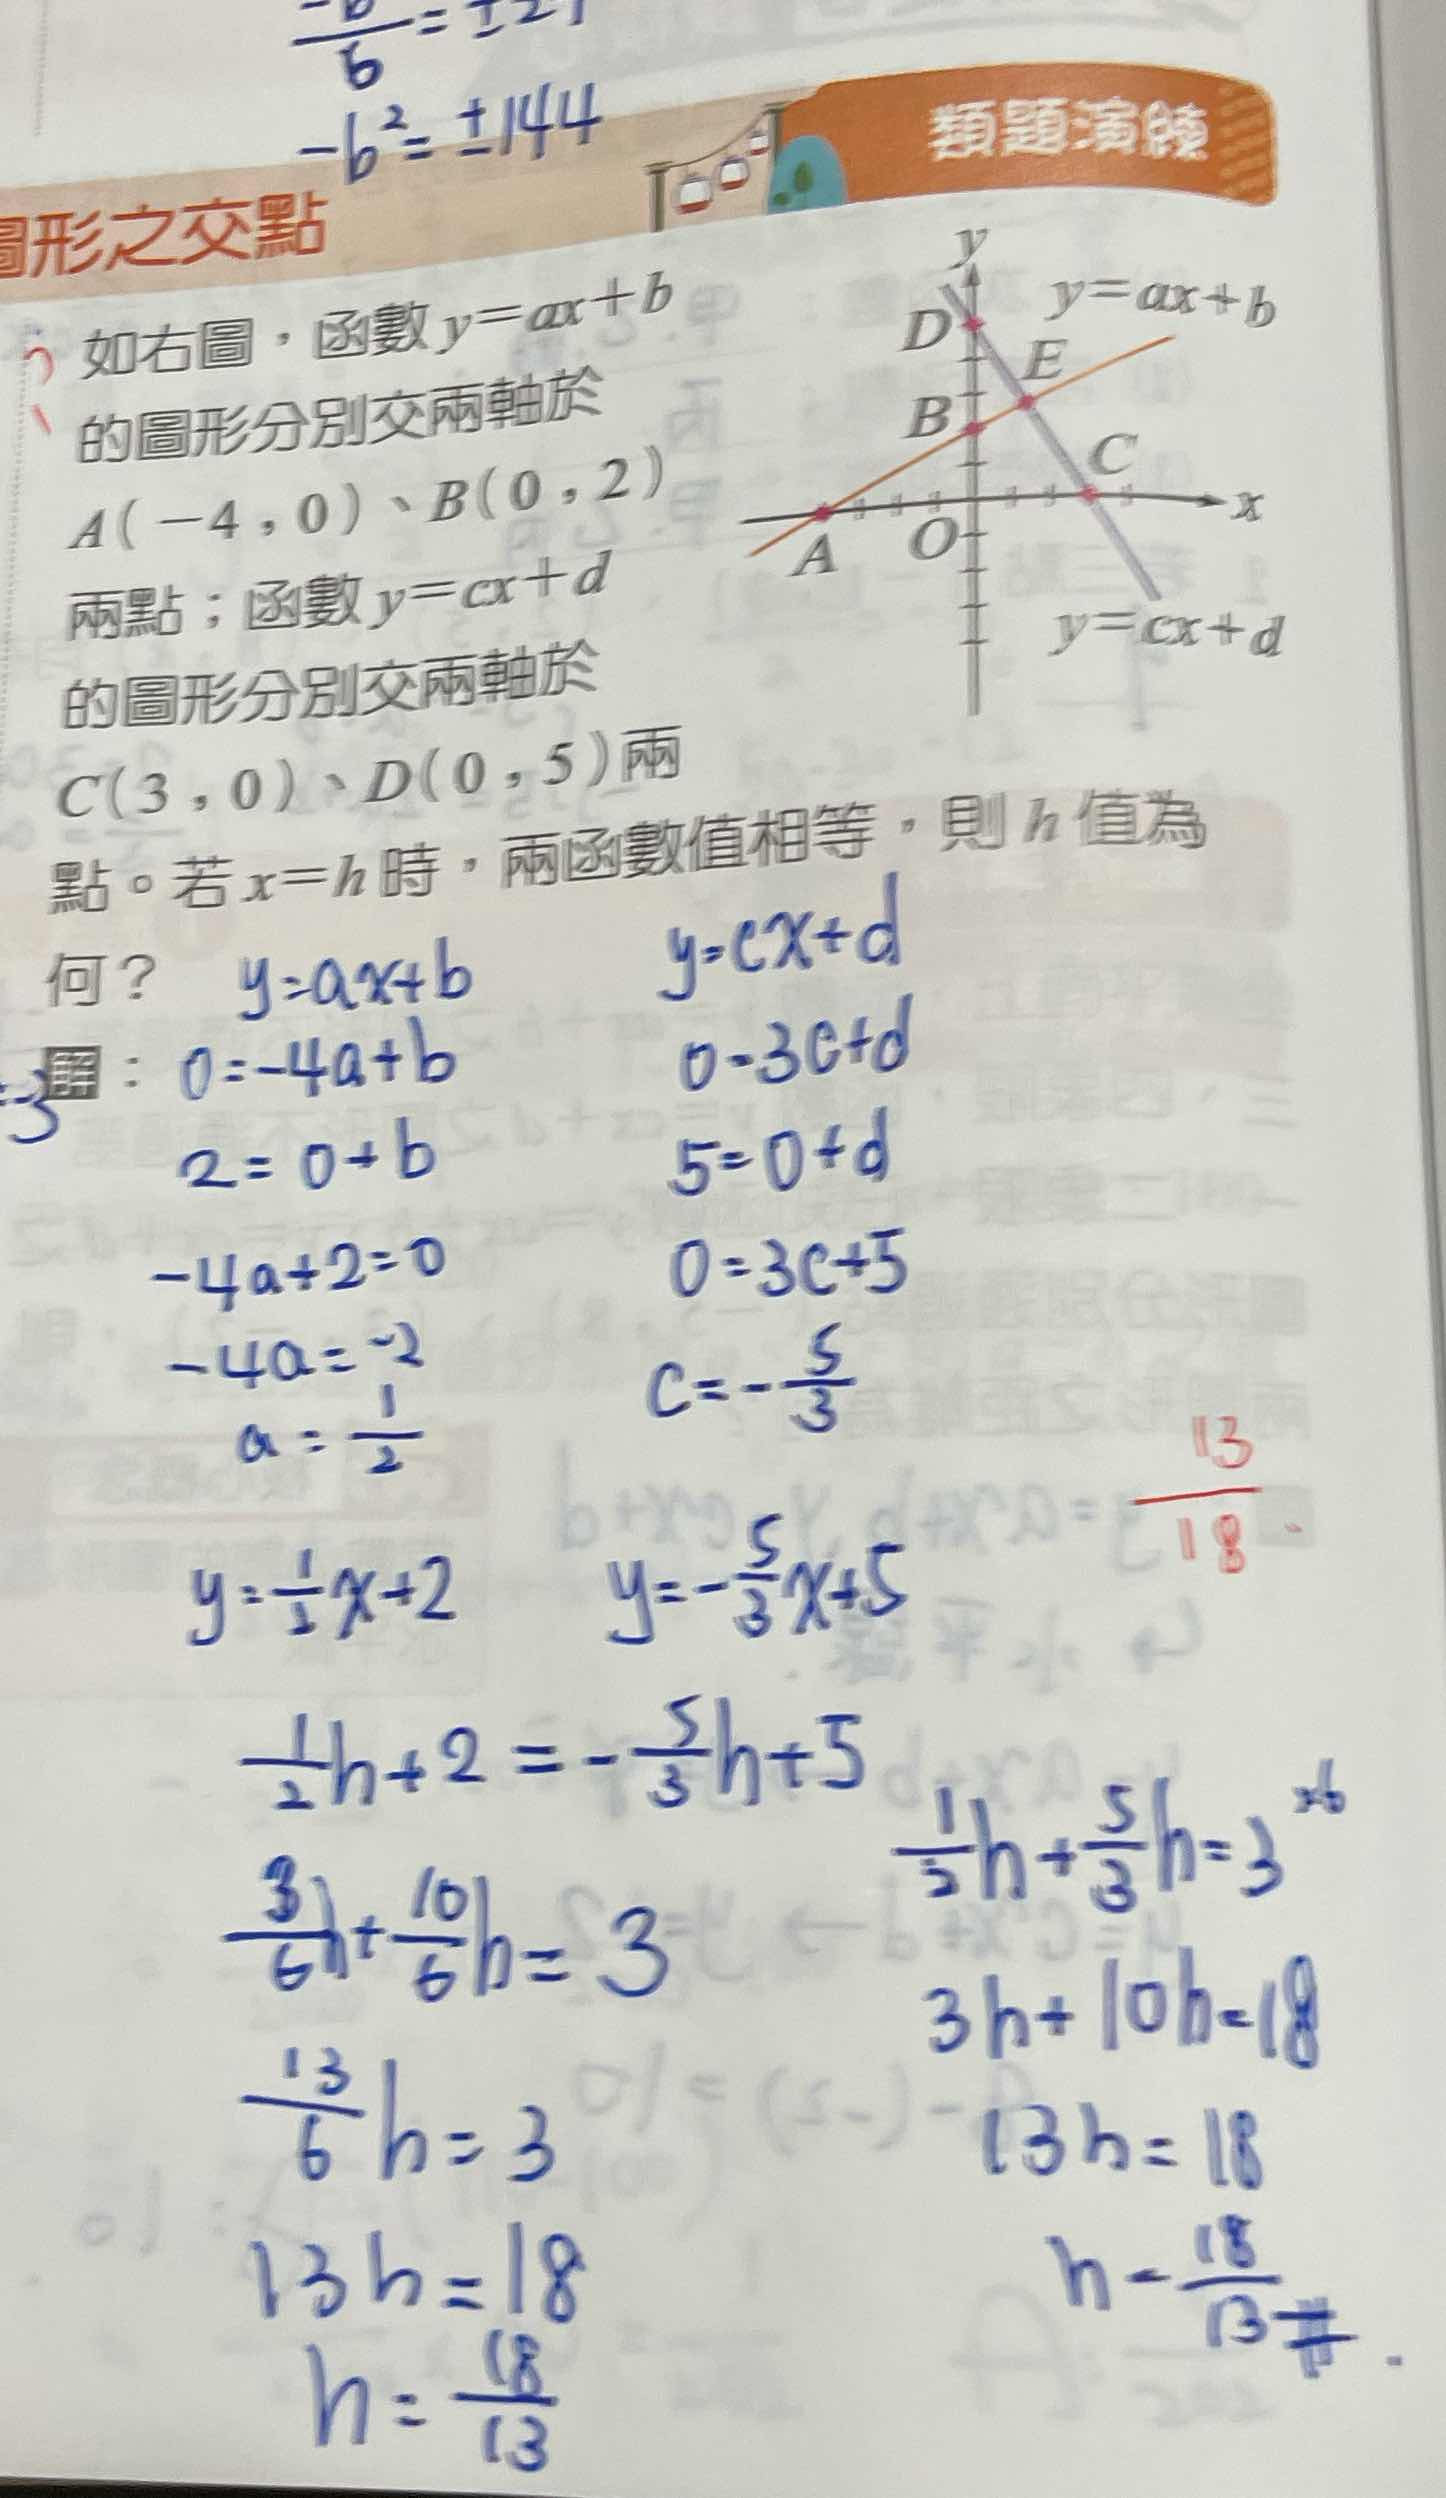 -b/b=±2
-b²=±144
類題演練
圖形之交點
如右圖，函數y=ax+b
的圖形分別交兩軸於
A(-4，0)、B(0，2)
兩點；函數y=cx+d
的圖形分別交兩軸於
C(3，0)、D(0，5)兩
點。若x=h時，兩函數值相等，則h值為
何？
y
y=ax+b
D
E
B
C
x
A
O
y=cx+d
y=ax+b y=cx+d
解：0=-4a+b 0=3c+d
2=0+b 5=0+d
-4a+2=0 0=3c+5
-4a=-2 c=-5/3
a=1/2
13/18
y=1/2x+2 y=-5/3x+5
1/2h+2=-5/3h+5
1/2h+5/3h=3 ×6
3/6h+10/6h=3
3h+10h=18
13/6h=3
13h=18
13h=18
h=18/13#
h=18/13